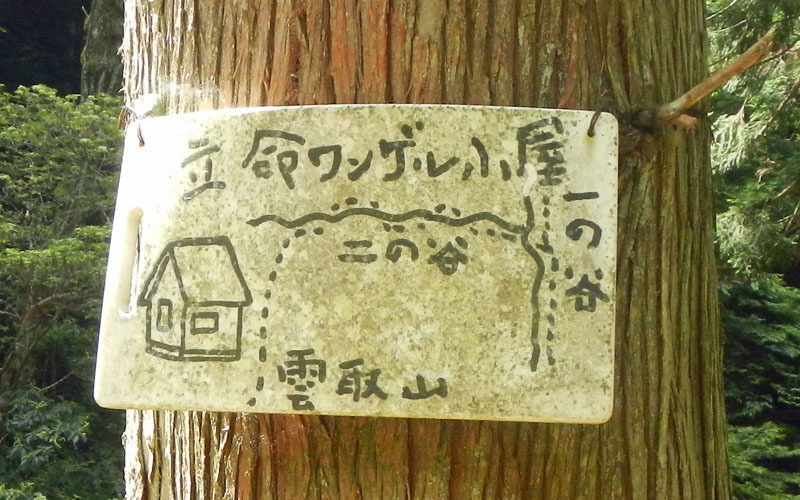 立命ワンゲル小屋
一の谷
二の谷
雲取山